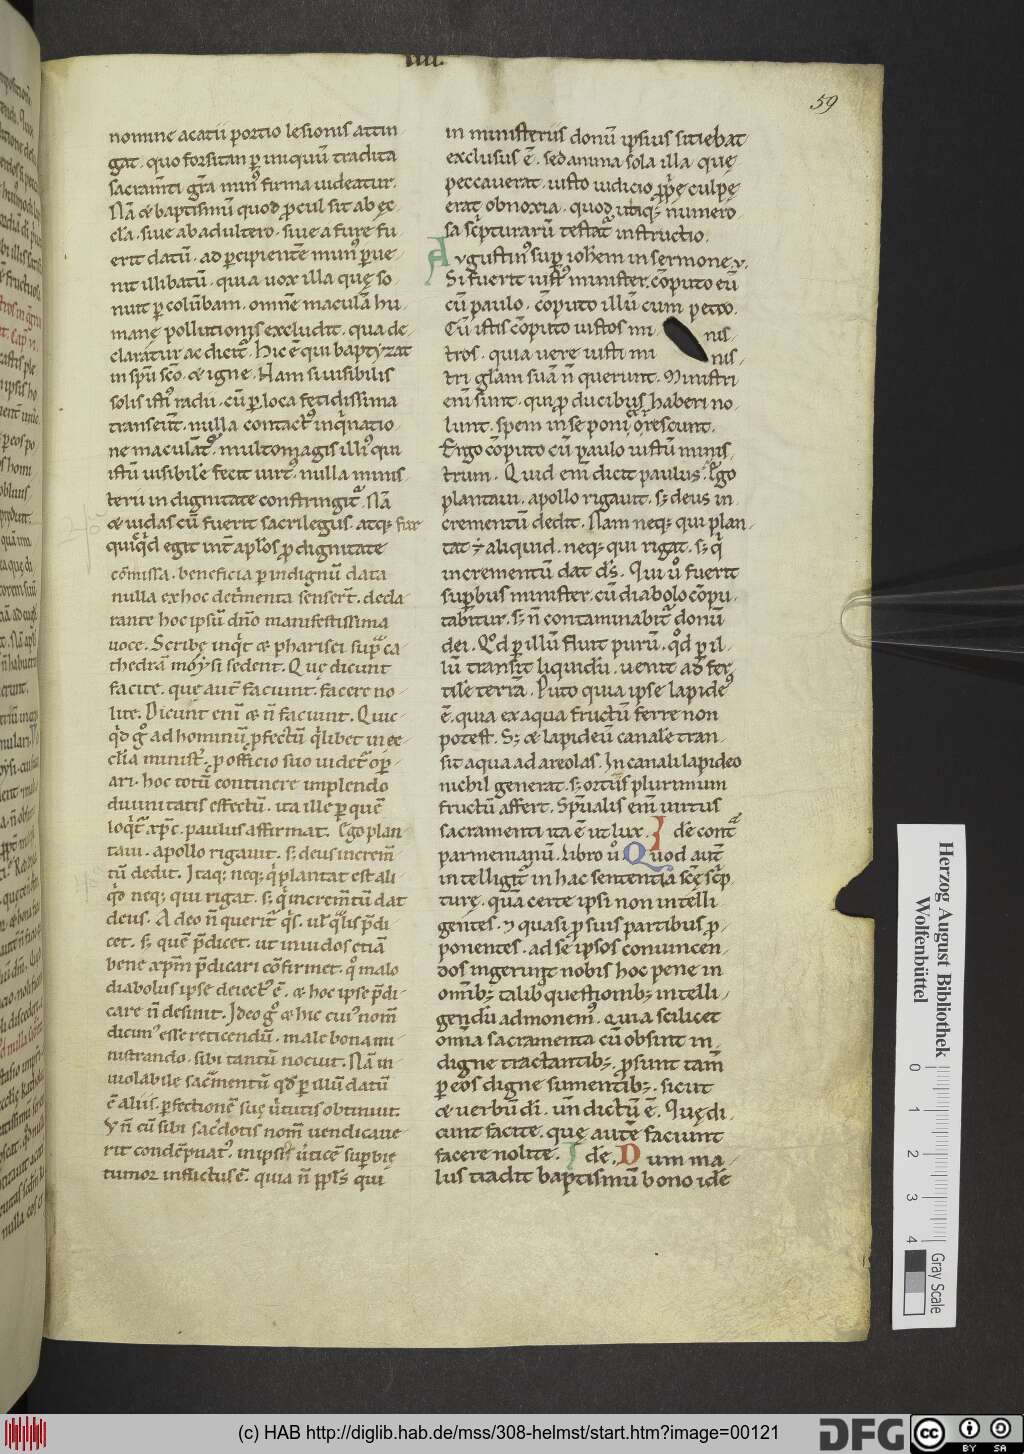 IIII.
59
nomine acatii portio lesionis attin
gat. quo forsitan ꝑ iniquū tradita
sacram̄ti gr̄a min᷒ firma uideatur.
Nā & baptismū quod ꝓcul sit ab ęc
cl̄a. siue ab adultero. siue a fure fu
erit datū. ad ꝑcipientē mun᷒ ꝑue
nit illibatū. quia uox illa quę so
nuit ꝑ colūbam. omnē maculā hu
manę pollutionis excludit. qua de
claratur ac dicit᷑. Hic ē qui baptyzat
in sp̄u sc̄o. & igne. Nam si uisibilis
solis isti᷒ radii. cū ꝑ loca fętidissima
transeūt. nulla contact᷒ inq̇natio
ne maculāt᷑. multo magis illi᷒ qui
istū uisibile fecit uirt᷒. nulla minis
terii indignitate constringit᷑. Nā
& iudas cū fuerit sacrilegus. atq; fur
quicq̇d egit int̄ apl̄os ꝓ dignitate
cōmissa. beneficia ꝑ indignū data
nulla ex hoc det̄menta senser̄t. decla
rante hoc ipsū dn̄o manifestissima
uoce. Scribę inq̇t & pharisei sup᷑ ca
thedrā moẏsi sedent. Quę dicunt
facite. quę aut̄ faciunt. facere no
lite. Dicunt enī & n̄ faciunt. Quic
q̇d g̊ ad hominū ꝓfectū q̇libet in ec
cl̄ia minist᷑. ꝓ officio suo uidet᷑ oꝑ
ari. hoc totū continere implendo
diuinitatis effectū. ita ille ꝑ quē
loq̇t᷑ xp̄c. paulus affirmat. Ego plan
taui. apollo rigauit. s; deus increm̄
tū dedit. Itaq; neq; q̇ plantat est ali
q̇d neq; qui rigat. s; q̇ increm̄tū dat
deus. Adeo n̄ querit᷑ q̇s. uł q̇lis p̄di
cet. s; quē p̄dicet. ut inuidos etiā
bene xp̄m p̄dicari cōfirmet. q̊ malo
diabolus ipse deiect᷒ ē. & hoc ipse p̄di
care n̄ desinit. Ideo g̊ & hic cui᷒ nom̄
dicim᷒ esse reticendū. male bona mi
nistrando. sibi tantū nocuit. Nā in
uiolabile sac̄mentū qd̄ ꝑ illū datū
ē aliis. ꝑfectionē suę ūtutis obtinuit.
Vn̄ cū sibi sac̄dotis nom̄ uendicaue
rit condēpnat᷒. in ipsi᷒ ūticē suꝑbię
tumor inflictus ē. quia n̄ ppl̄s qui
in ministeriis donū ipsius sitiebat
exclusus ē. sed anima sola illa. quę
peccauerat. iusto iudicio ꝓp̄ę culpę
erat obnoxia. quod utiq; numero
sa sc̄pturarū testat᷑ instructio.
Avgustin᷒ sup̄ ioh̄em in sermone. v.
Si fuerit iust᷒ minister. cōputo eū
cū paulo. cōputo illū cum petro.
Cū istis cōputo iustos mi nis
tros. quia uere iusti mi nis
tri gl̄am suā n̄ querunt. Ministri
enī sunt. qui ꝓ ducibus haberi no
lunt. spem in se poni ōrrescunt.
Ergo cōputo cū paulo iustū minis
trum. Quid enī dicit paulus. Ego
plantaui. apollo rigauit. s; deus in
crementū dedit. Nam neq; qui plan
tat ÷ aliquid. neq; qui rigat. s; q̇
incrementū dat ds̄. Qui ů fuerit
suꝑbus minister. cū diabolo cōpu
tabitur. s; n̄ contaminabit᷑ donū
dei. Qd̄ ꝑ illū fluit purū. qd̄ ꝑ il
lū transit liquidū. uenit ad fer
tilē terrā. Puto quia ipse lapide᷒
ē. quia ex aqua fructū ferre non
potest. S; & lapideū canalē tran
sit aqua ad areolas. In canali lapideo
nichil generat. s; ortus plurimum
fructū affert. Sp̄ualis enī uirtus
sacramenti ita ē ut lux. Idē cont᷑
parmenianū. libro ıı̊ Quod aut̄
intelligit᷑ in hac sententia sc̄ę sc̄p
turę. quā certe ipsi non intelli
gentes. ⁊ quasi ꝓ suis partibus ꝓ
ponentes. ad se ipsos conuincen
dos ingerunt nobis hoc pene in
omīb; talib; questionib; intelli
gendū admonem᷒. quia scilicet
om̄ia sacramenta cū obsint in
digne tractantib;. ꝓsunt tam̄
ꝑ eos digne sumentib;. sicut
& uerbū dī. un̄ dictū ē. Quę di
cunt facite. quę autē faciunt
facere nolite. Idē. Dum ma
lus tradit baptismū bono idē
Herzog August Bibliothek
Wolfenbüttel
0 1 2 3 4
Gray Scale
(c) HAB http://diglib.hab.de/mss/308-helmst/start.htm?image=00121
DFG
cc BY SA